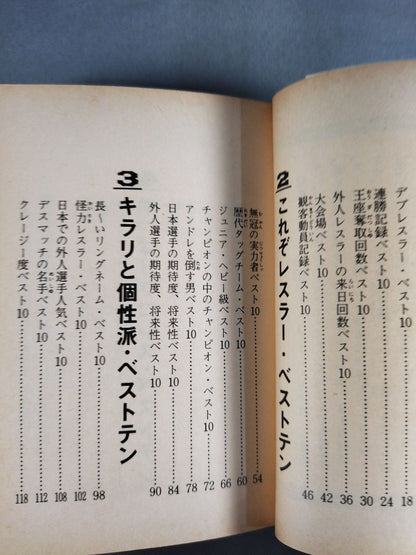 デブレスラー・ベスト10……18
連勝記録ベスト10……24
王座奪取回数ベスト10……30
外人レスラーの来日回数ベスト10……36
大会場ベスト10……42
観客動員記録ベスト10……46
2 これぞレスラー・ベストテン
無冠の実力者ベスト10……54
歴代タッグチーム・ベスト10……60
ジュニア・ヘビー級ベスト10……66
チャンピオンの中のチャンピオン・ベスト10……72
アンドレを倒す男ベスト10……78
日本選手の期待度、将来性ベスト10……84
外人選手の期待度、将来性ベスト10……90
3 キラリと個性派・ベストテン
長〜いリングネーム・ベスト10……98
怪力レスラー・ベスト10……102
日本での外人選手人気ベスト10……108
デスマッチの名手ベスト10……112
クレージー度ベスト10……118